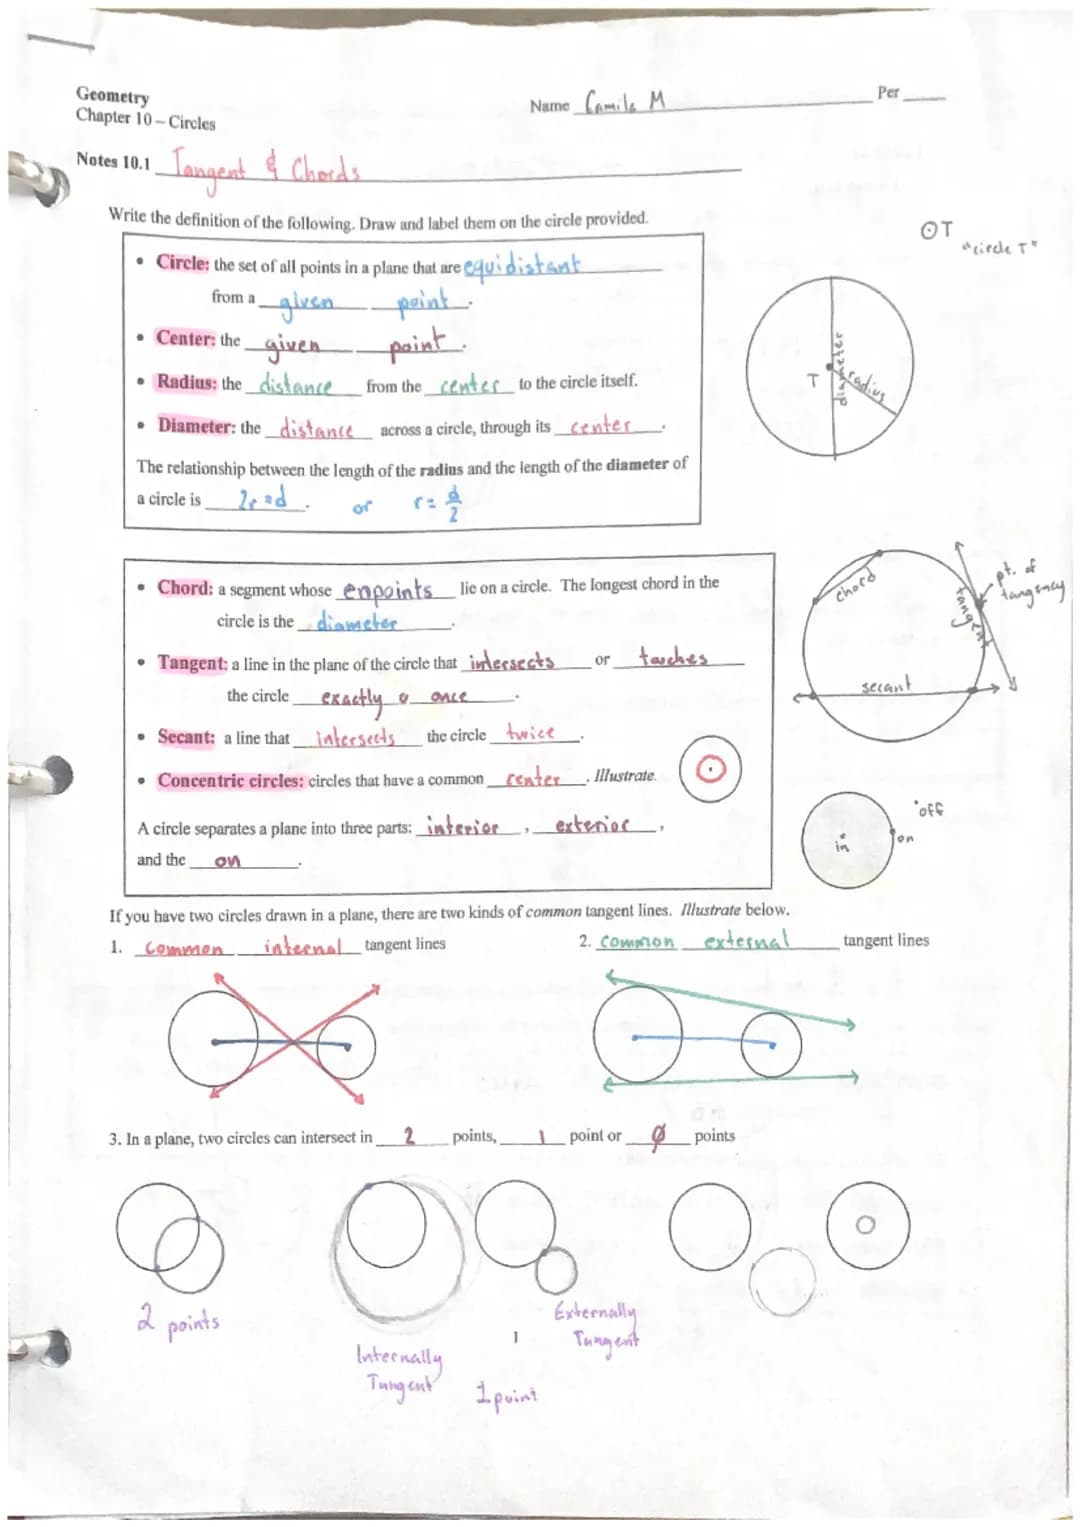 Geometry
Chapter 10 – Circles
Name Camila M Per
Notes 10.1 Tangent & Chords
Write the definition of the following. Draw and label them on the circle provided.
• Circle: the set of all points in a plane that are equidistant
from a given point.
• Center: the given point.
• Radius: the distance from the center to the circle itself.
• Diameter: the distance across a circle, through its center.
The relationship between the length of the radius and the length of the diameter of
a circle is 2r = d. or r = d/2
⊙T
"circle T"
T
diameter
radius
• Chord: a segment whose enpoints lie on a circle. The longest chord in the
circle is the diameter.
• Tangent: a line in the plane of the circle that intersects or touches
the circle exactly once.
• Secant: a line that intersects the circle twice.
• Concentric circles: circles that have a common center. Illustrate.
A circle separates a plane into three parts: interior, exterior,
and the on.
chord
tangent
pt. of
tangency
secant
in
on
off
If you have two circles drawn in a plane, there are two kinds of common tangent lines. Illustrate below.
1. Common internal tangent lines
2. common external tangent lines
3. In a plane, two circles can intersect in 2 points, 1 point or Ø points
2 points
Internally
Tangent
1
1 point
Externally
Tangent